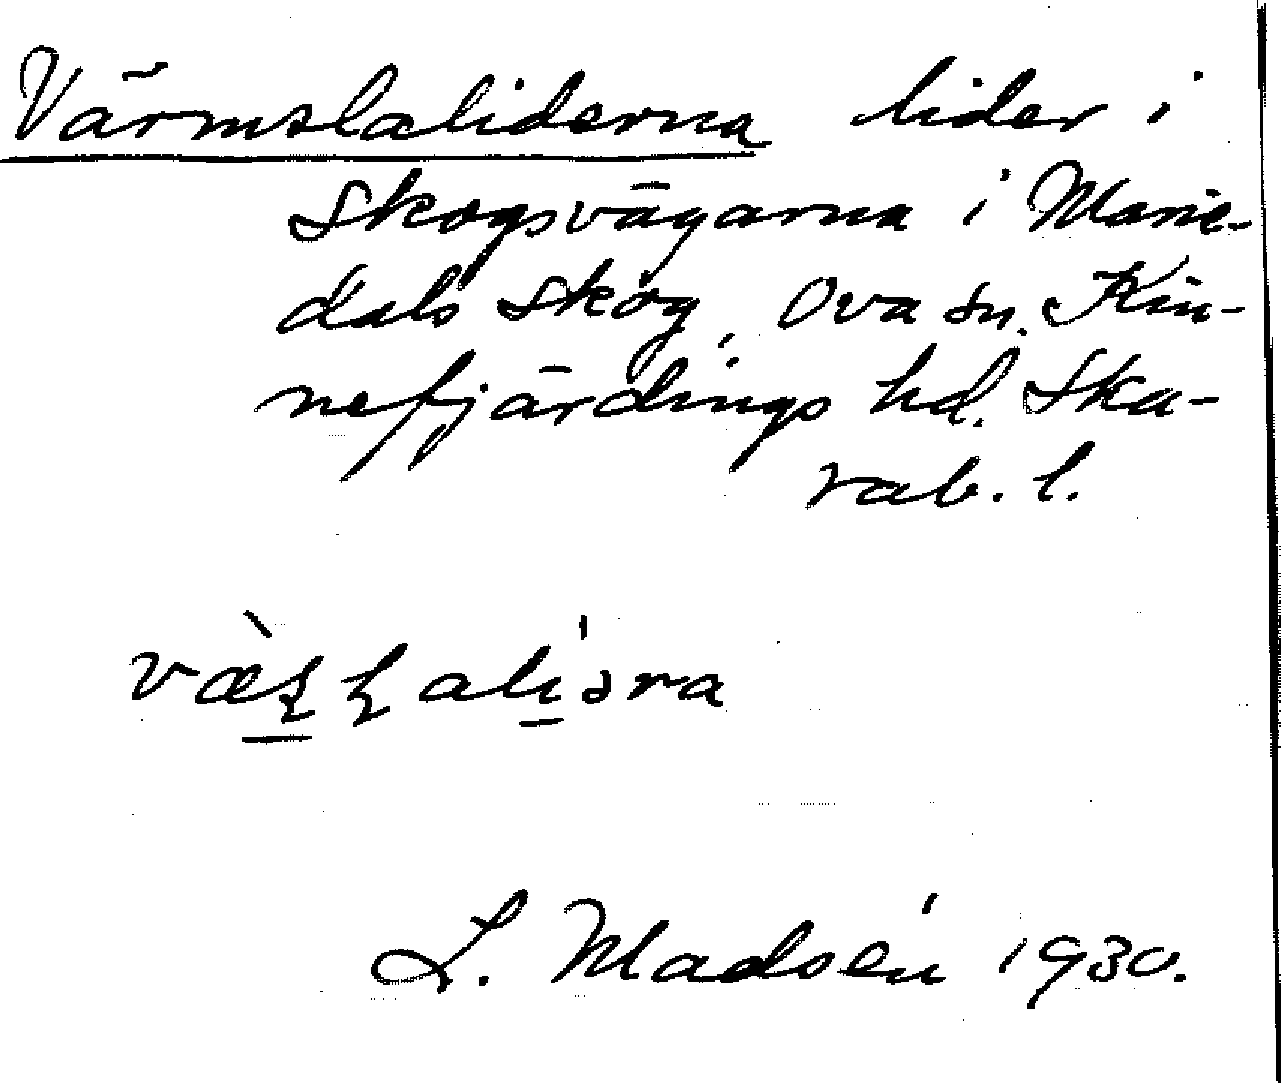 Värmslaliderna lider i
skogsvägarna i Marie-
dals skog, Ova sn. Kin-
nefjärdings hd. Ska-
rab. l.
L. Madsén 1930.